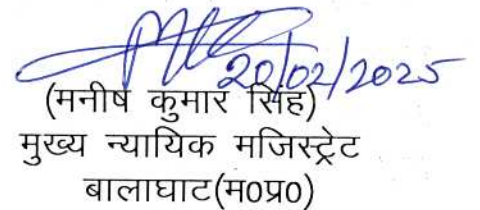 20/02/2025
(मनीष कुमार सिंह)
मुख्य न्यायिक मजिस्ट्रेट
बालाघाट(म0प्र0)